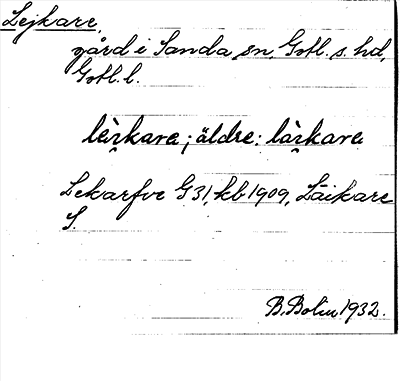 Lejkare,
gård i Sanda sn, Gotl. s. hd,
Gotl. l.
läi̯kara; äldre: lài̯kara
Lekarfve G 31, kb 1909, Läikare
S.
B. Bolin 1932.